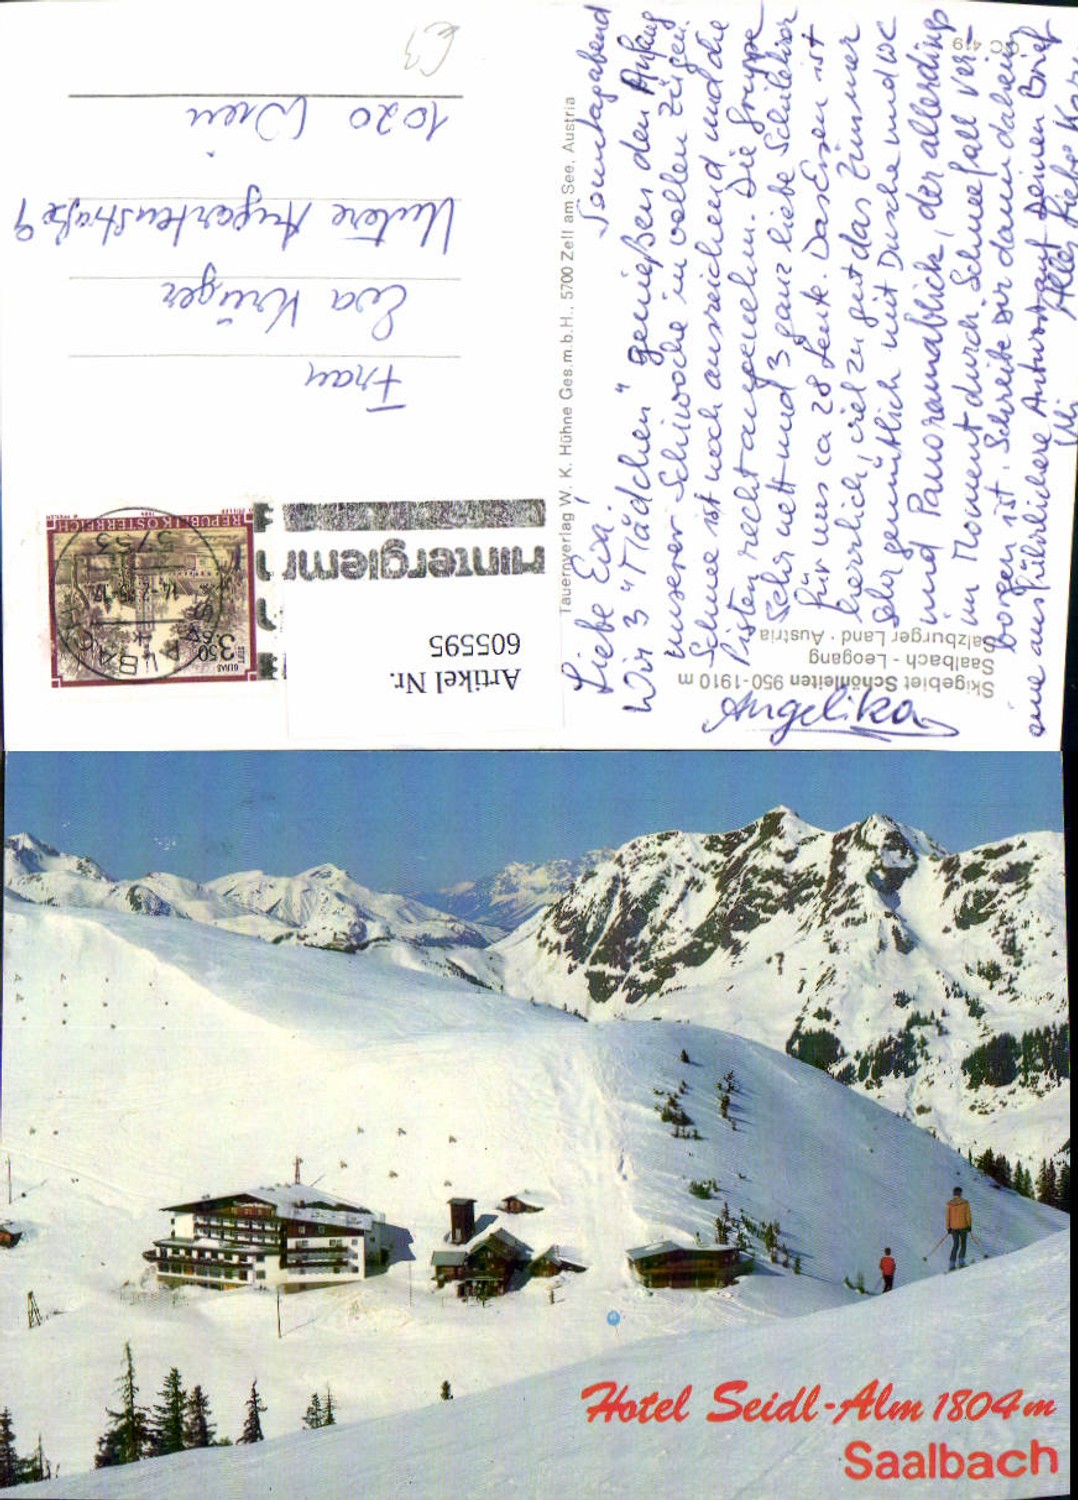 Sonntagabend
Liebe Eva!
Wir 3 "Mädchen" genießen den Anfang
unserer Schiwoche in vollen Zügen.
Schnee ist noch ausreichend und die
Pisten recht angenehm. Die Gruppe
sehr nett und 3 ganz liebe Schilehrer
für uns ca 28 Leute. Das Essen ist
herrlich, viel zu gut das Zimmer
sehr gemütlich mit Dusche und WC
und Panoramablick, der allerdings
im Moment durch Schneefall ver-
borgen ist. Schreibe dir dann daheim
eine ausführlichere Antwort auf Deinen Brief
Alles Liebe
Angelika
Frau
Eva Krüger
Untere Augartenstraße 9
1020 Wien
Tauernverlag W. K. Hühne Ges.m.b.H., 5700 Zell am See, Austria
Skigebiet Schönleiten 950-1910 m
Saalbach - Leogang
Salzburger Land · Austria
419
REPUBLIK ÖSTERREICH
3.50
5753
Hinterglemm
Artikel Nr.
605595
Hotel Seidl-Alm 1804 m
Saalbach